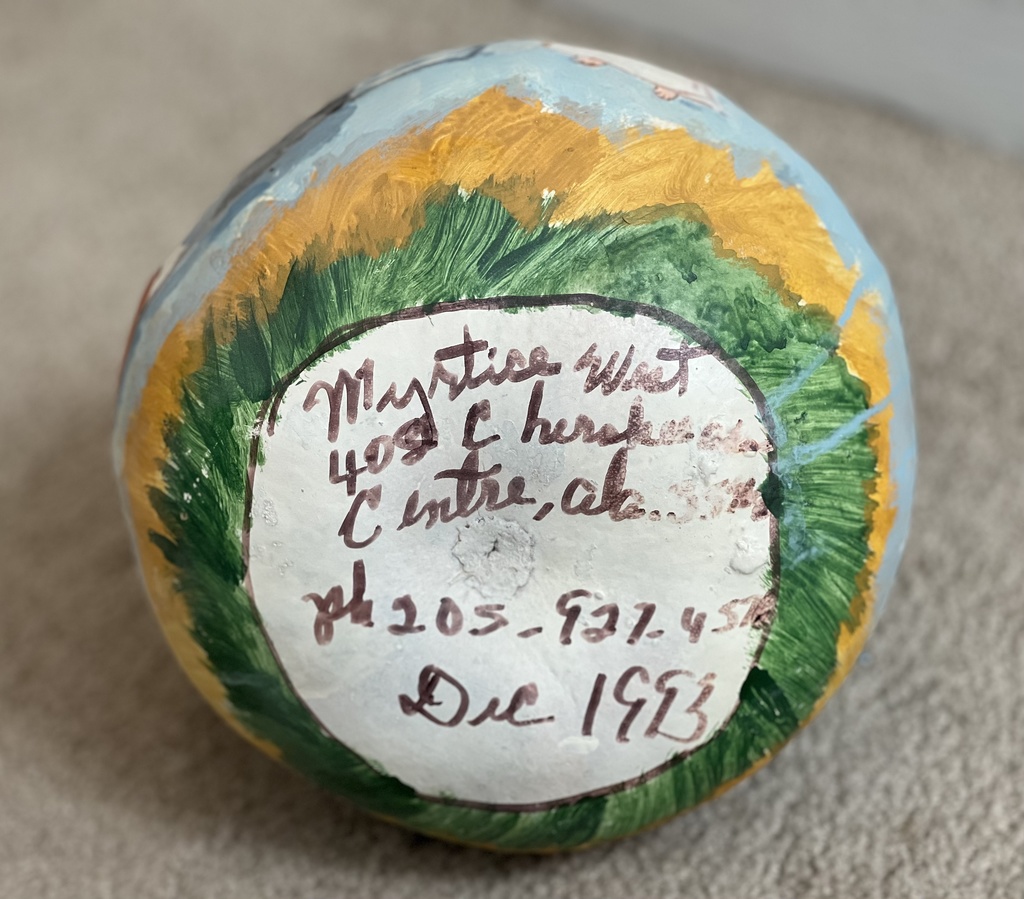 Myrtice West
405 C herokee
Centre, ala.
ph 205-927-45
Dec 1993